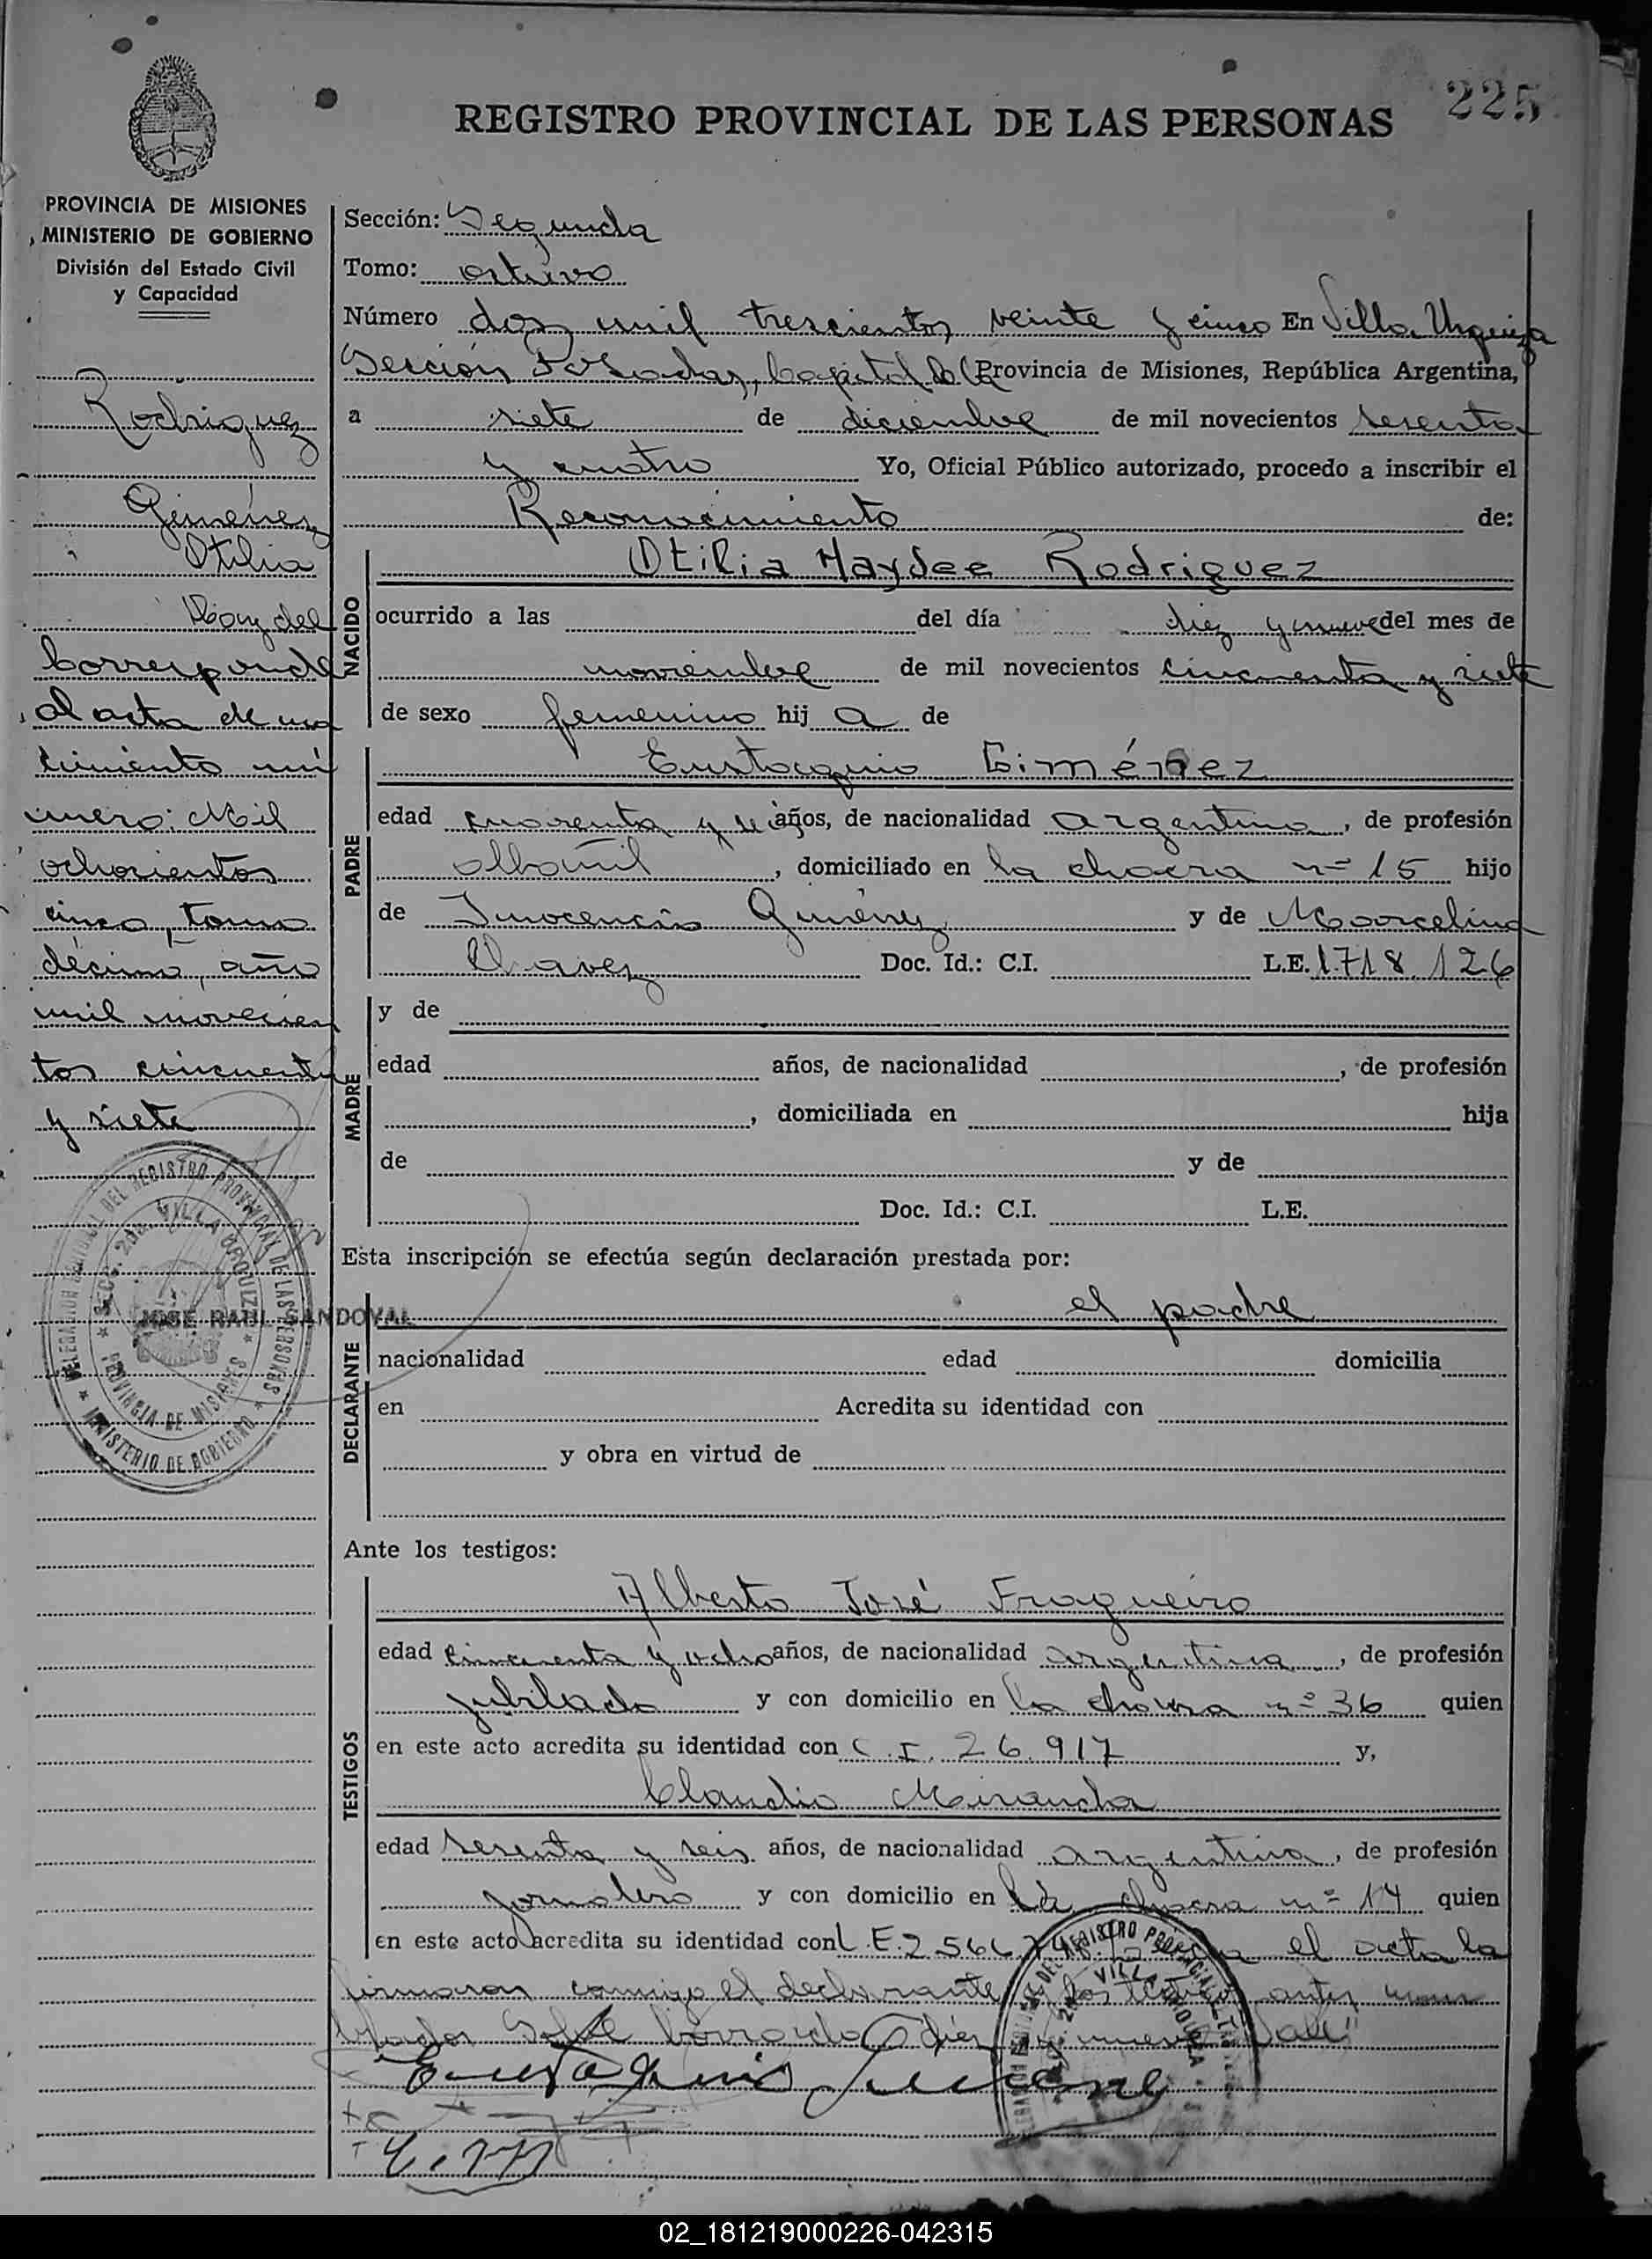 225
REGISTRO PROVINCIAL DE LAS PERSONAS
PROVINCIA DE MISIONES
MINISTERIO DE GOBIERNO
División del Estado Civil
y Capacidad
Rodriguez
Giménez
Otilia
Haydee
Corresponde
al acta de na
cimiento nú
mero: Mil
ochocientos
cinco, tomo
décimo, año
mil novecien
tos cincuenta
y siete
DEL REGISTRO PROVINCIAL DE LAS PERSONAS
SECC. 2da. VILLA URQUIZA
PROVINCIA DE MISIONES
MINISTERIO DE GOBIERNO
JOSE RAUL SANDOVAL
Sección: Segunda
Tomo: octavo
Número dos mil trescientos veinte y cinco En Villa Urquiza
Sección Posadas, Capital de la Provincia de Misiones, República Argentina,
a siete de diciembre de mil novecientos sesenta
y cuatro Yo, Oficial Público autorizado, procedo a inscribir el
Reconocimiento de:
NACIDO
Otilia Haydee Rodriguez
ocurrido a las del día diez y nueve del mes de
noviembre de mil novecientos cincuenta y siete
de sexo femenino hij a de
PADRE
Eustaquio Giménez
edad cuarenta y años, de nacionalidad argentina, de profesión
albañil, domiciliado en la chacra nº 15 hijo
de Inocencio Giménez y de Marcelina
Chavez Doc. Id.: C.I. L.E. 1.718.126
MADRE
y de
edad años, de nacionalidad, de profesión
, domiciliada en hija
de y de
Doc. Id.: C.I. L.E.
Esta inscripción se efectúa según declaración prestada por:
DECLARANTE
el padre
nacionalidad edad domicilia
en Acredita su identidad con
y obra en virtud de
Ante los testigos:
TESTIGOS
Alberto José Fragueiro
edad cincuenta y ocho años, de nacionalidad argentina, de profesión
jubilado y con domicilio en la chacra nº 36 quien
en este acto acredita su identidad con C.I. 26.917 y,
Claudio Miranda
edad sesenta y seis años, de nacionalidad argentina, de profesión
jornalero y con domicilio en la chacra nº 14 quien
en este acto acredita su identidad con L.E. el acta la
firmaron conmigo el declarante y los testigos antes nom
brados Sobre borrado "diez y nueve Vale"
Eustaquio Gimenez
02_181219000226-042315